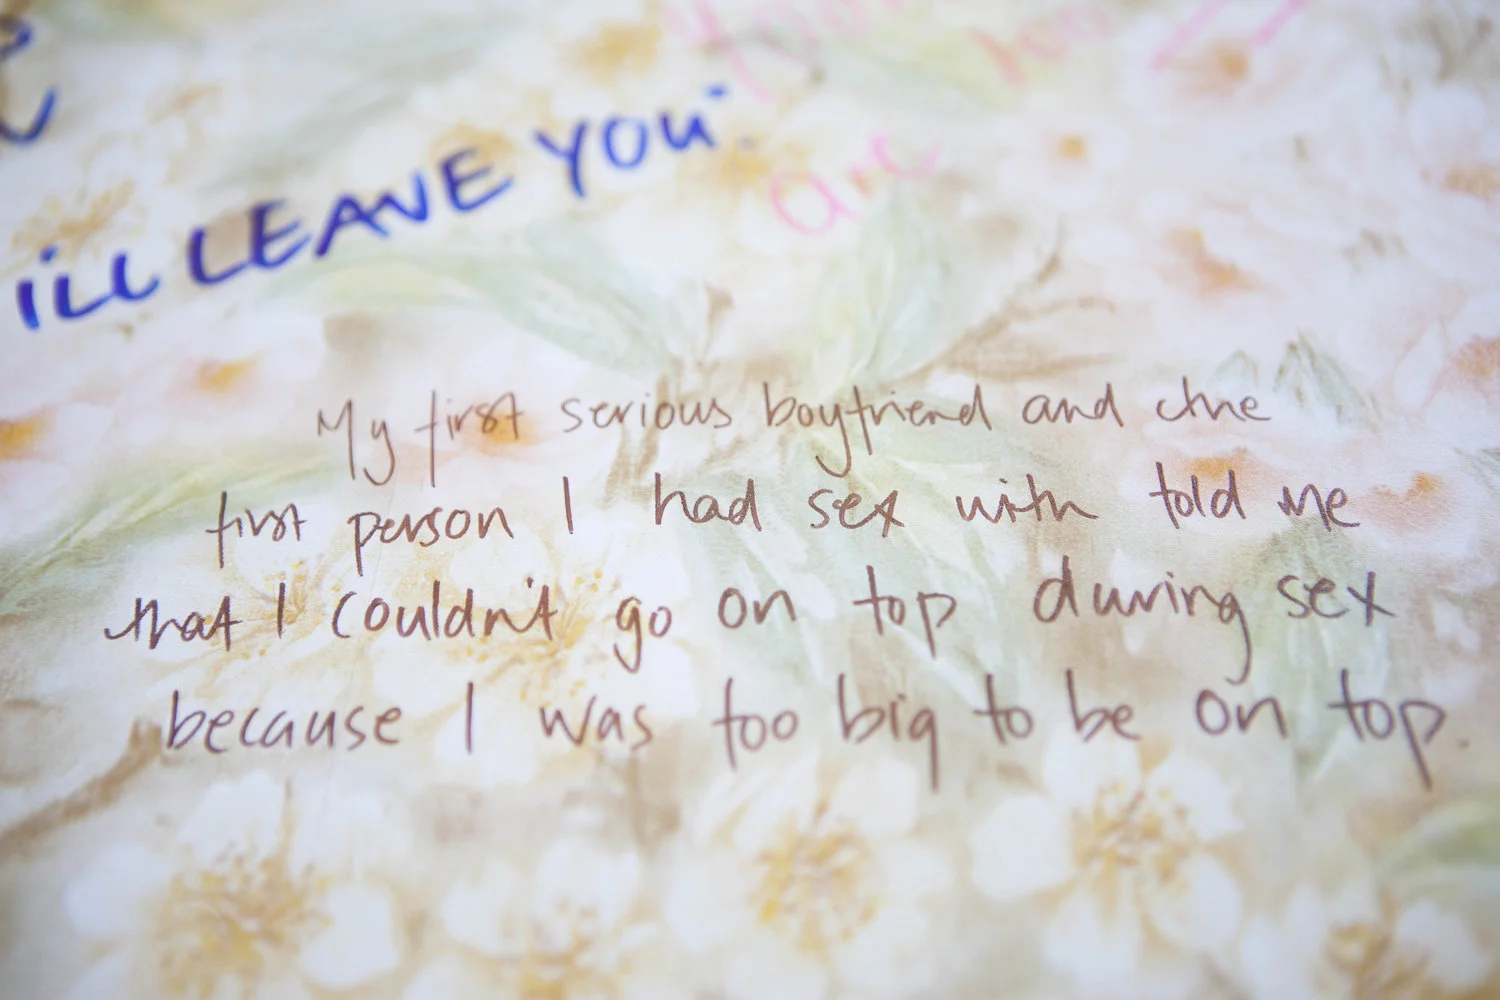 i'LL LEAVE YOU"
are
My first serious boyfriend and the
first person I had sex with told me
that I couldn't go on top during sex
because I was too big to be on top.